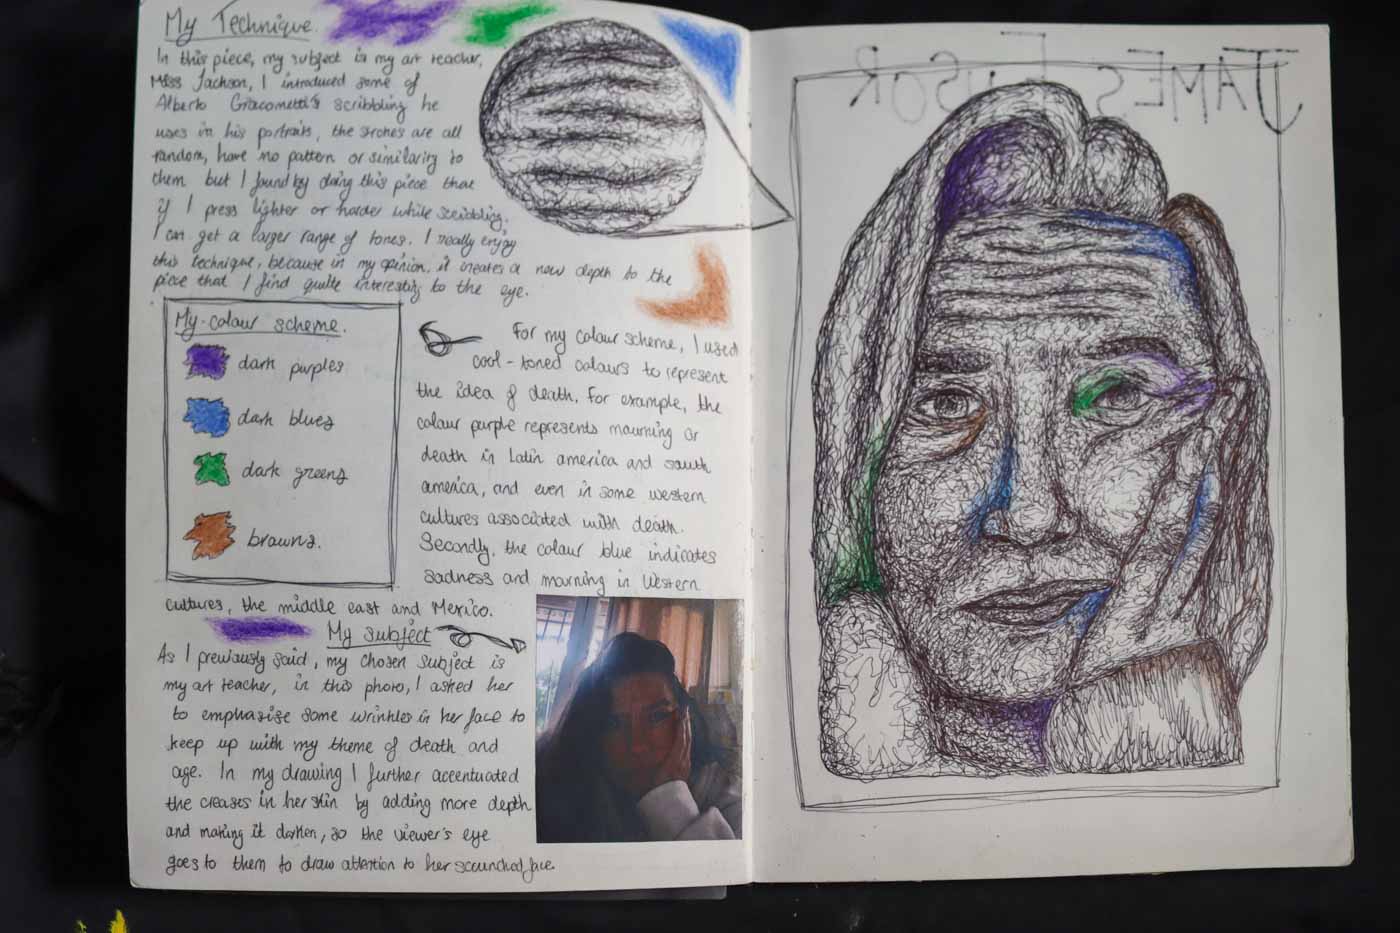 My Technique.
In this piece, my subject is my art teacher,
Miss Jackson, I introduced some of
Alberto Giacometti's scribbling he
uses in his portraits, the strokes are all
random, have no pattern or similarity to
them but I found by doing this piece that
if I press lighter or harder while scribbling,
I can get a larger range of tones. I really enjoy
this technique, because in my opinion, it creates a new depth to the
piece that I find quite interesting to the eye.
My colour scheme.
dark purples
dark blues
dark greens
browns.
For my colour scheme, I used
cool-toned colours to represent
the idea of death. For example, the
colour purple represents mourning or
death in Latin america and south
america, and even in some western
cultures associated with death.
Secondly, the colour blue indicates
sadness and mourning in Western
cultures, the middle east and Mexico.
My subject
As I previously said, my chosen subject is
my art teacher, in this photo, I asked her
to emphasise some wrinkles in her face to
keep up with my theme of death and
age. In my drawing I further accentuated
the creases in her skin by adding more depth
and making it darker, so the viewer's eye
goes to them to draw attention to her scrunched face.
JAMES ENSOR